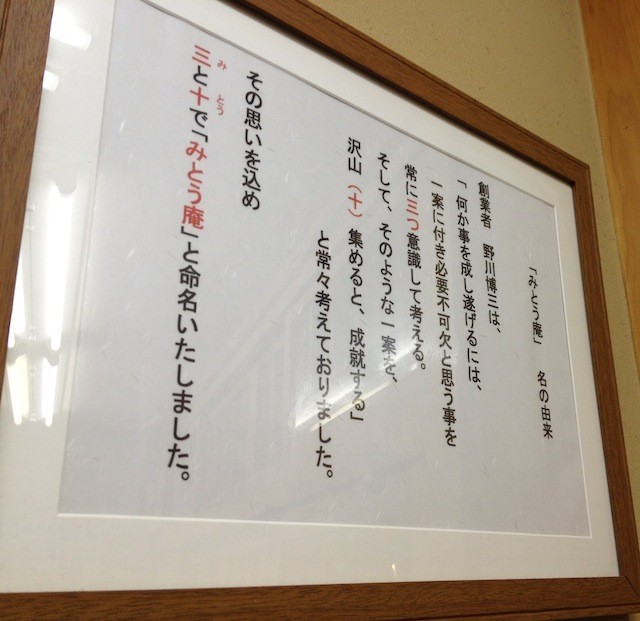 「みとう庵」 名の由来
創業者 野川博三は、
「何か事を成し遂げるには、
一案に付き必要不可欠と思う事を
常に三つ意識して考える。
そして、そのような一案を、
沢山（十）集めると、成就する」
と常々考えておりました。
その思いを込め
三と十で「みとう庵」と命名いたしました。
み とう